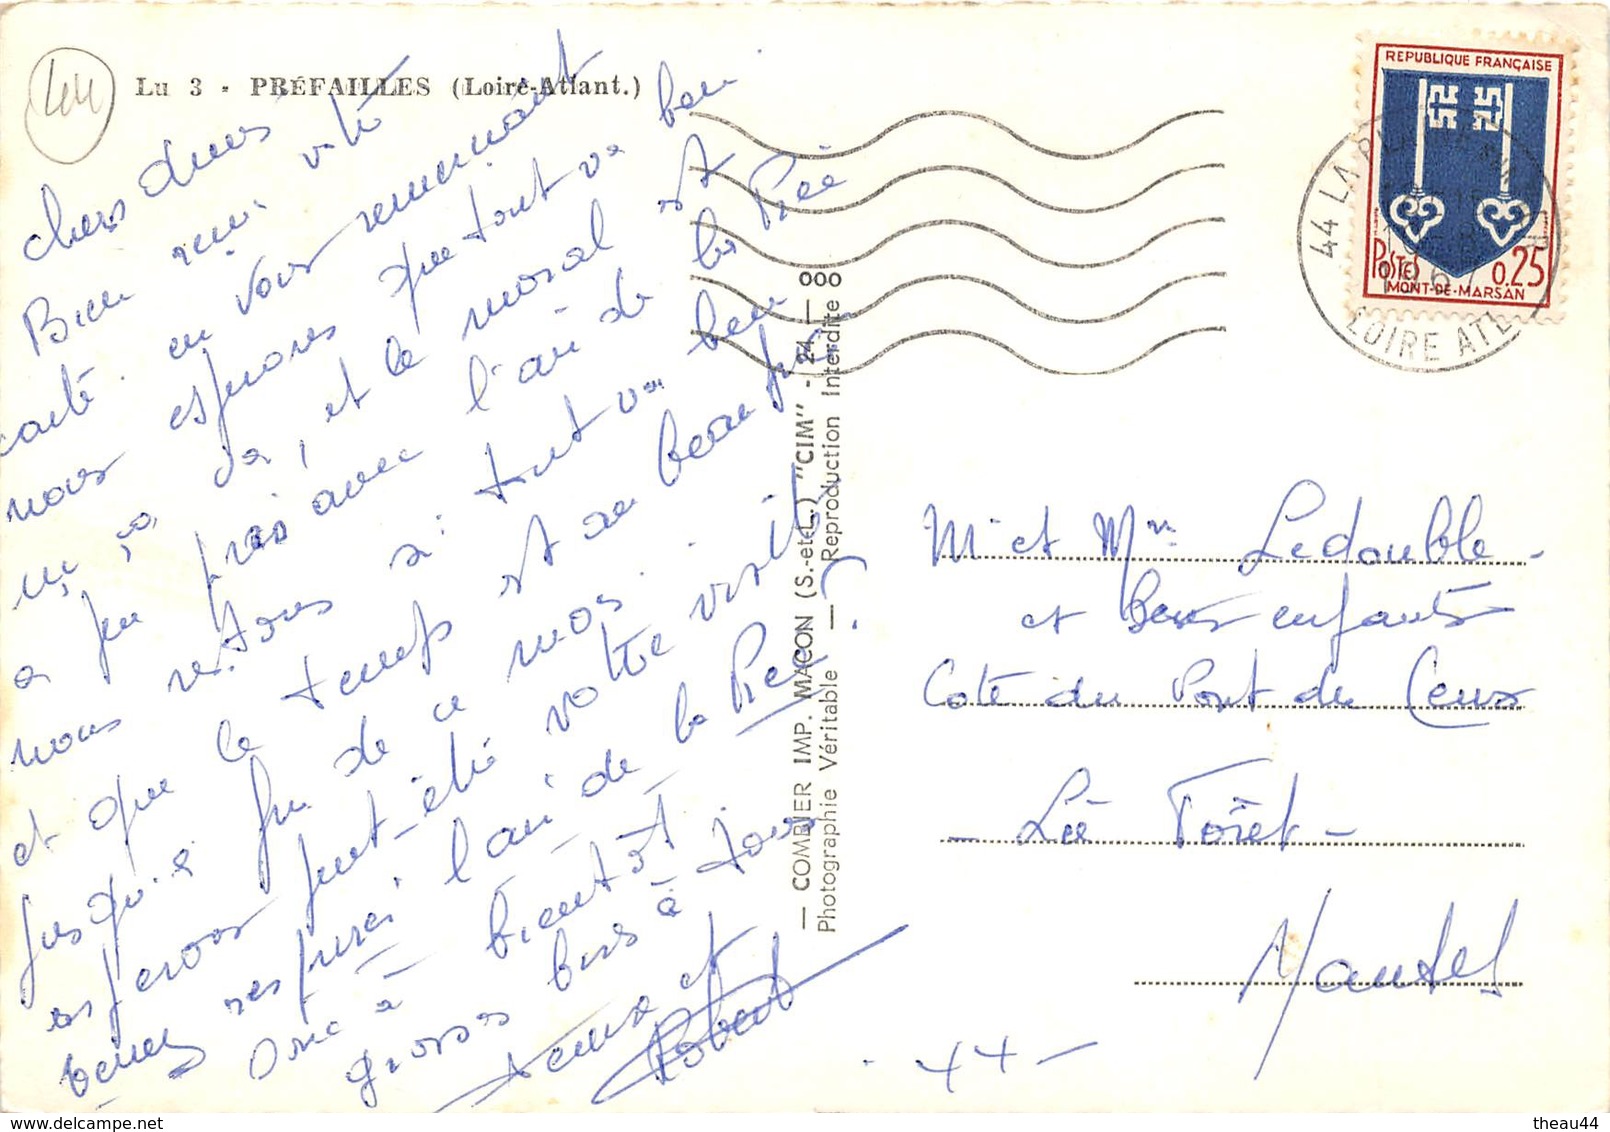 44
Lu 3 - PRÉFAILLES (Loire-Atlant.)
chers amis
Bien reçu votre
carte en vous remerciant
nous espérons que tout va bien
, et le moral est
a peu près avec l'air de la Prée
nous restons si tout va bien
et que le temps est au beau
jusqu'à fin de ce mois.
espérons peut-être votre visite
venez respirer l'air de la Prée.
Donc à bientôt
grosses bises à tous
et
Robert
— COMBIER IMP. MACON (S.-et-L.) "CIM" - 24 — 000
Photographie Véritable — Reproduction Interdite
REPUBLIQUE FRANÇAISE
25 25
POSTES 0.25
MONT-DE-MARSAN
44 LA PLAINE
LOIRE ATL.
Mr et Mme Ledouble -
et leurs enfants
Coté du Pont des Ceux
- La Forêt -
Nantes
- 44 -
theau44